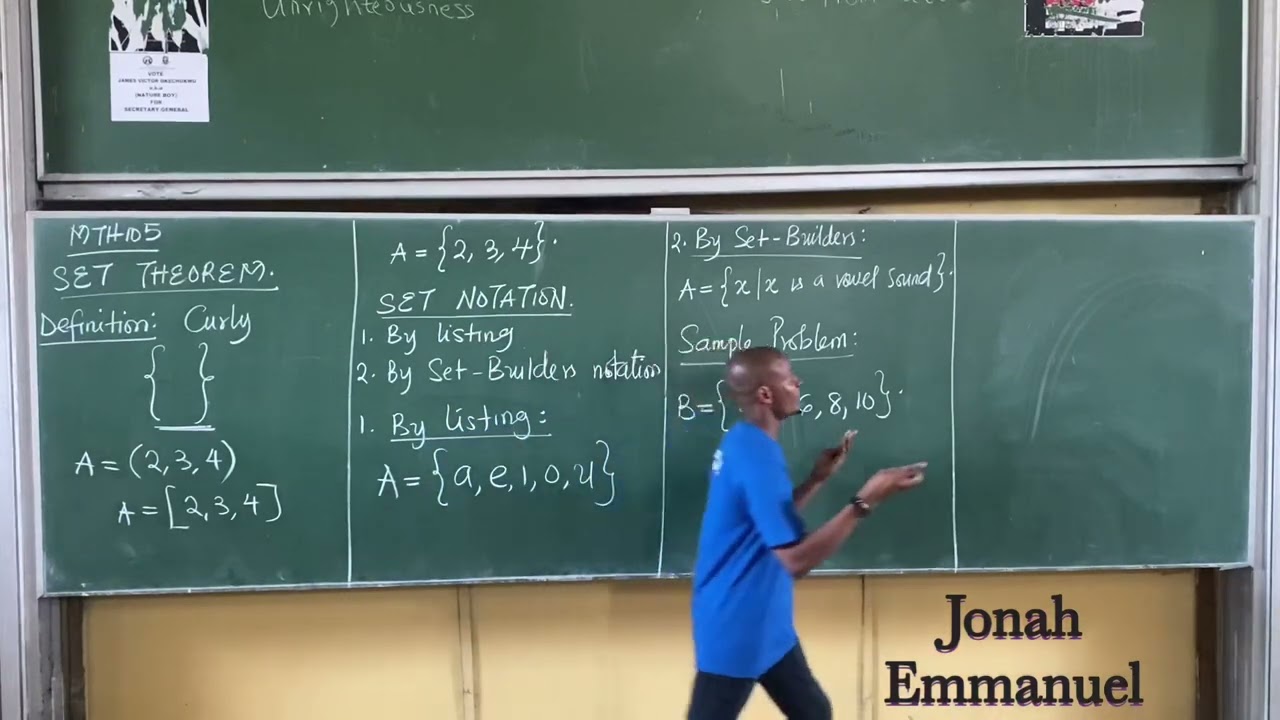 Unrighteousness
VOTE
JAMES VICTOR OKECHUKWU
a.k.a
(NATURE BOY)
FOR
SECRETARY GENERAL
MTH105
SET THEOREM.
Definition: Curly
{ }
A = (2, 3, 4)
A = [2, 3, 4]
A = {2, 3, 4}.
SET NOTATION.
1. By listing
2. By Set-Builders notation
1. By listing:
A = {a, e, i, o, u}
2. By Set-Builders:
A = {x/x is a vowel sound}.
Sample Problem:
B = { 6, 8, 10}.
Jonah
Emmanuel